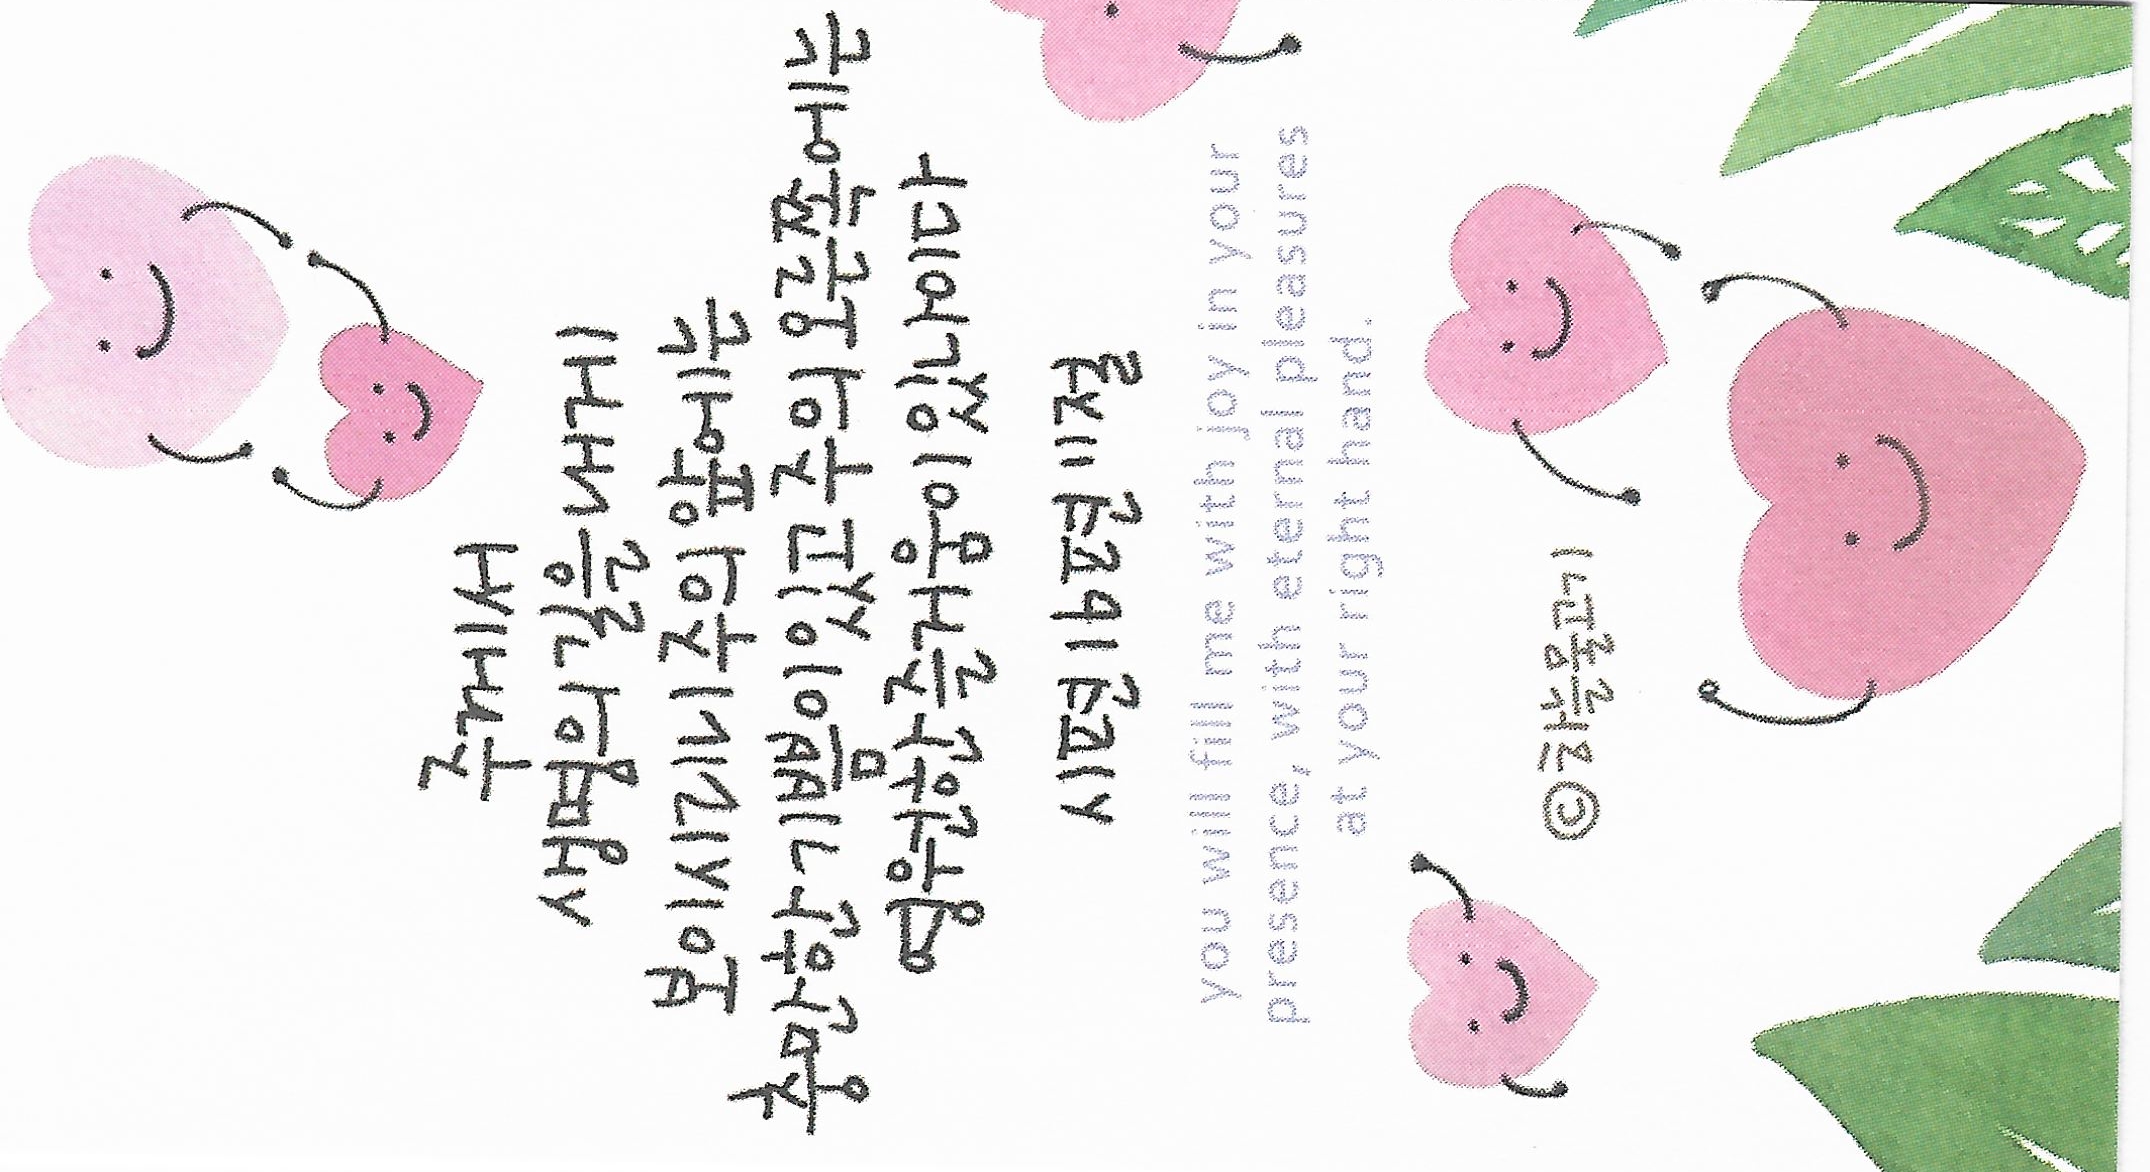 주께서
생명의 길을 내게
보이시리니 주의 앞에는
충만한 기쁨이 있고 주의 오른쪽에는
영원한 즐거움이 있나이다
시편 16편 11절
you will fill me with joy in your
presence, with eternal pleasures
at your right hand.
© 하늘물고기